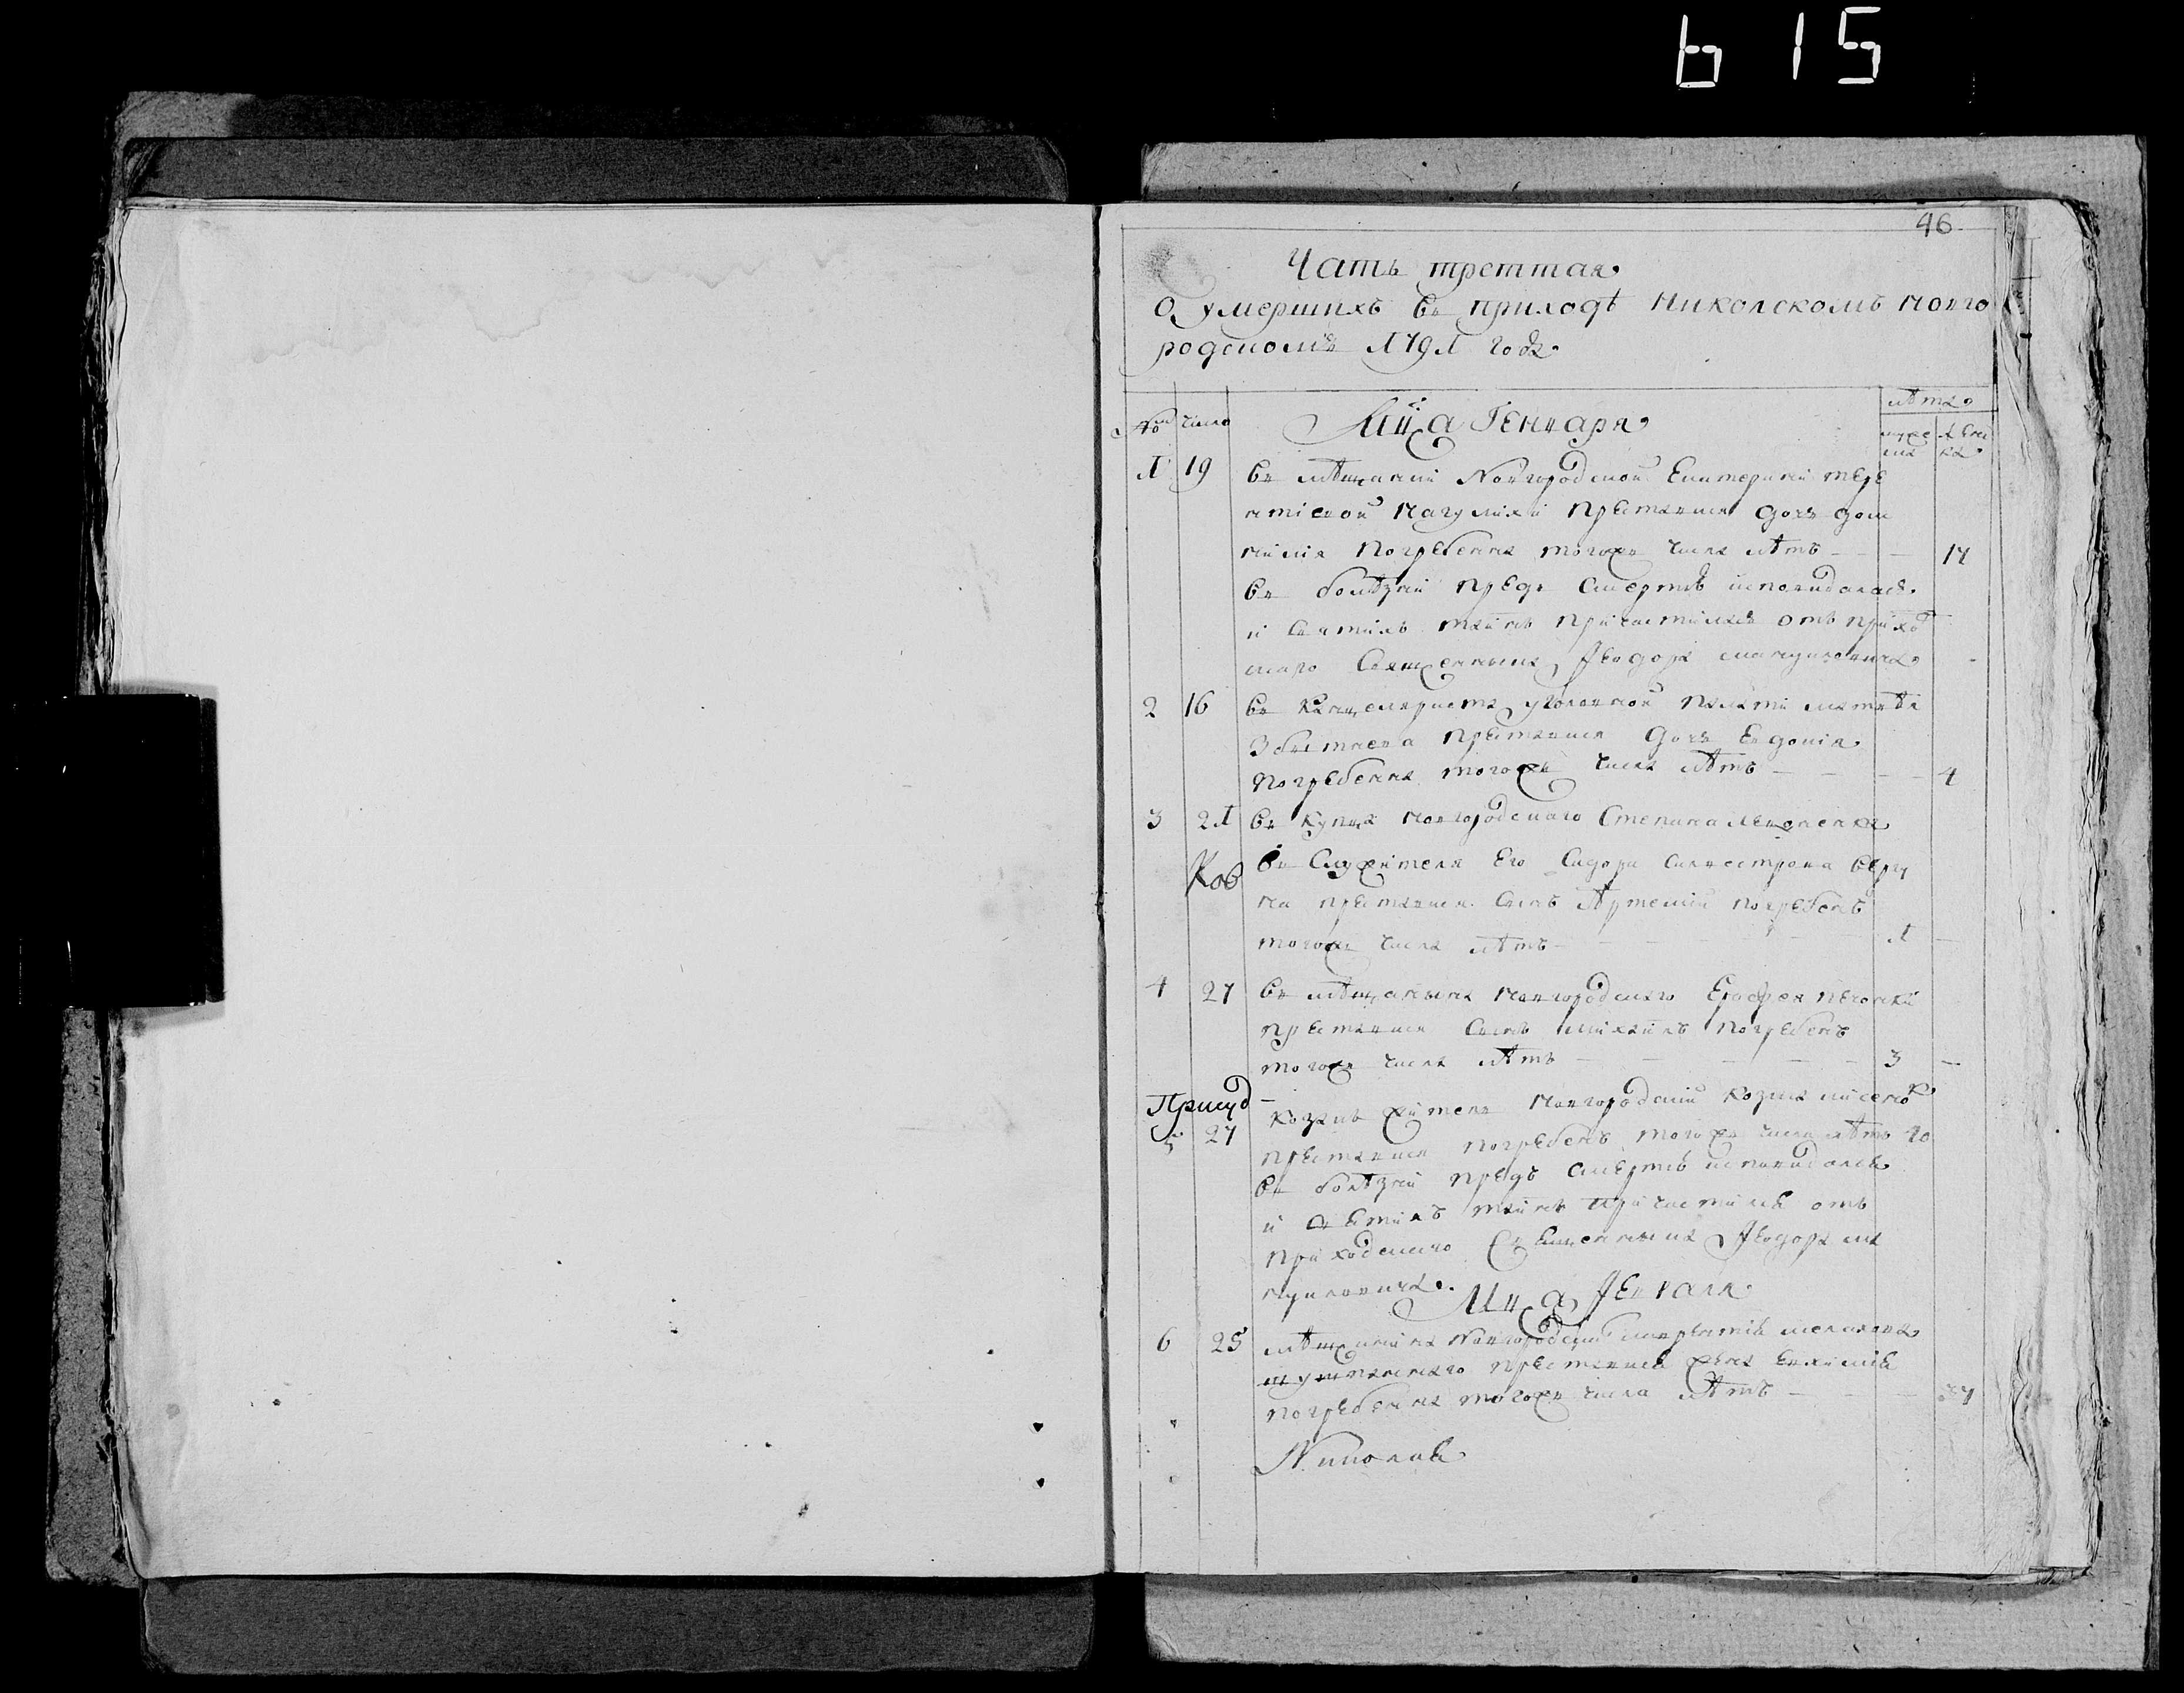 615
46
Чать треттая
О умершихъ въ приходѣ николскомъ новго
родскомъ 1791 года
№ число Мца Генваря лѣта
муже ска женс ка
1 19 въ мѣщанки Новгородской Екатерины тере
нтіевой преставися дочь дом
нѣкія погребенна тогожъ числа лѣтъ 17
въ болѣзни предъ смертю исповидалася
и святихъ таинъ причастилася отъ прихо
скаго Священника Ѳеодора мануиловича
2 16 въ канцеляриста уголовной палати матвѣя
преставися дочь Евдокія
погребенна тогоже числа лѣтъ 4
3 21 въ купца новгородскаго Степана
въ служителя его Сидора силвестрова
Ков
на преставися синъ Артемій погребенъ
тогожъ числа лѣтъ 1
4 27 въ мѣщанина новгородскаго Ерофея
преставися синъ михаилъ погребенъ
тогожъ числа лѣтъ 3
5 27 житель новгородский козма
преставися погребенъ тогожъ числа лѣтъ 40
въ болѣзни предъ смертю исповидался
и святихъ таинъ причастился отъ
приходскаго Священника Ѳеодора ма
нуиловича
Мца Ѳевраля
6 25 мѣщанина Новгородскаго
преставися жена Евхимія
погребенна тогожъ числа лѣтъ 37